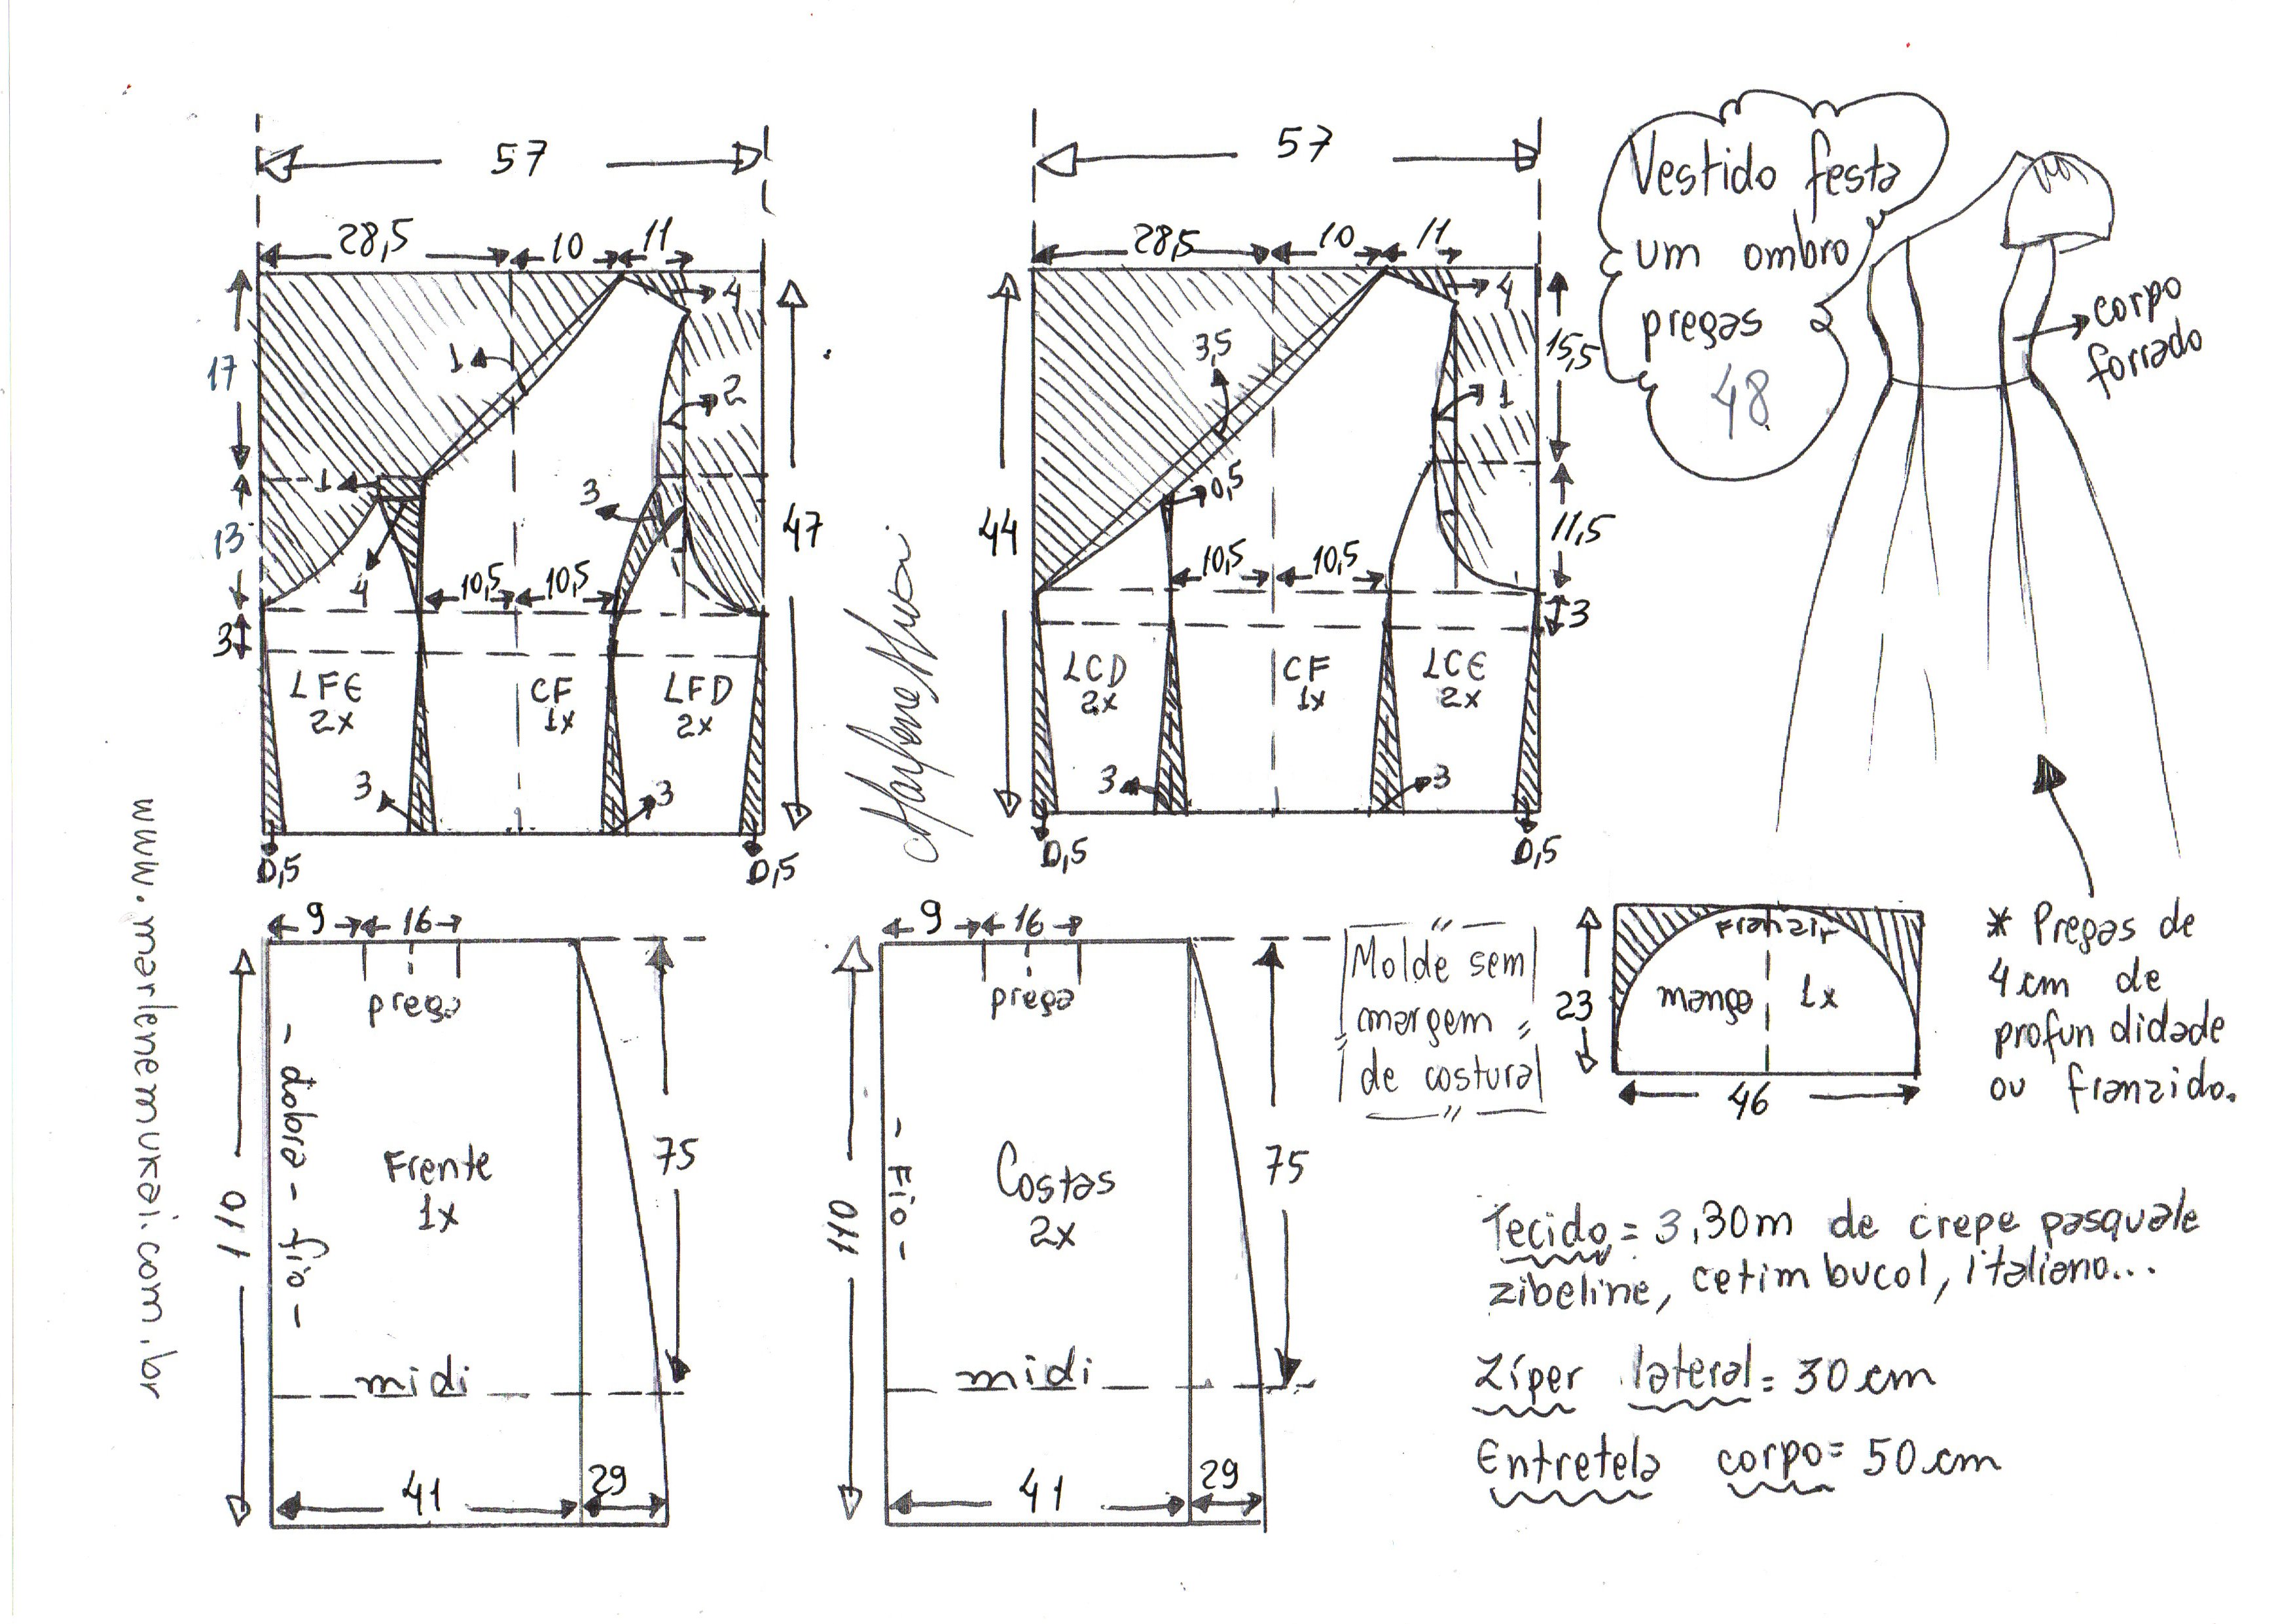 57
28,5
10
11
4
1
17
2
1
3
13
4
10,5
10,5
47
3
LFE
2x
CF
1x
LFD
2x
3
3
0,5
0,5
57
28,5
10
11
4
3,5
15,5
1
0,5
44
11,5
10,5
10,5
3
LCD
2x
CF
1x
LCE
2x
3
3
0,5
0,5
Vestido festa
um ombro
pregas
48
corpo
forrado
www.marlenemukai.com.br
9
16
prega
110
- dobra - fio -
Frente
1x
75
midi
41
29
9
16
prega
110
- Fio -
Costas
2x
75
midi
41
29
Molde sem
margem
de costura
Franzir
manga 1x
23
46
* Pregas de
4 cm de
profundidade
ou franzido.
Tecido = 3,30m de crepe pasquale
zibeline, cetim bucol, italiano...
Zíper lateral = 30 cm
Entretela corpo = 50 cm